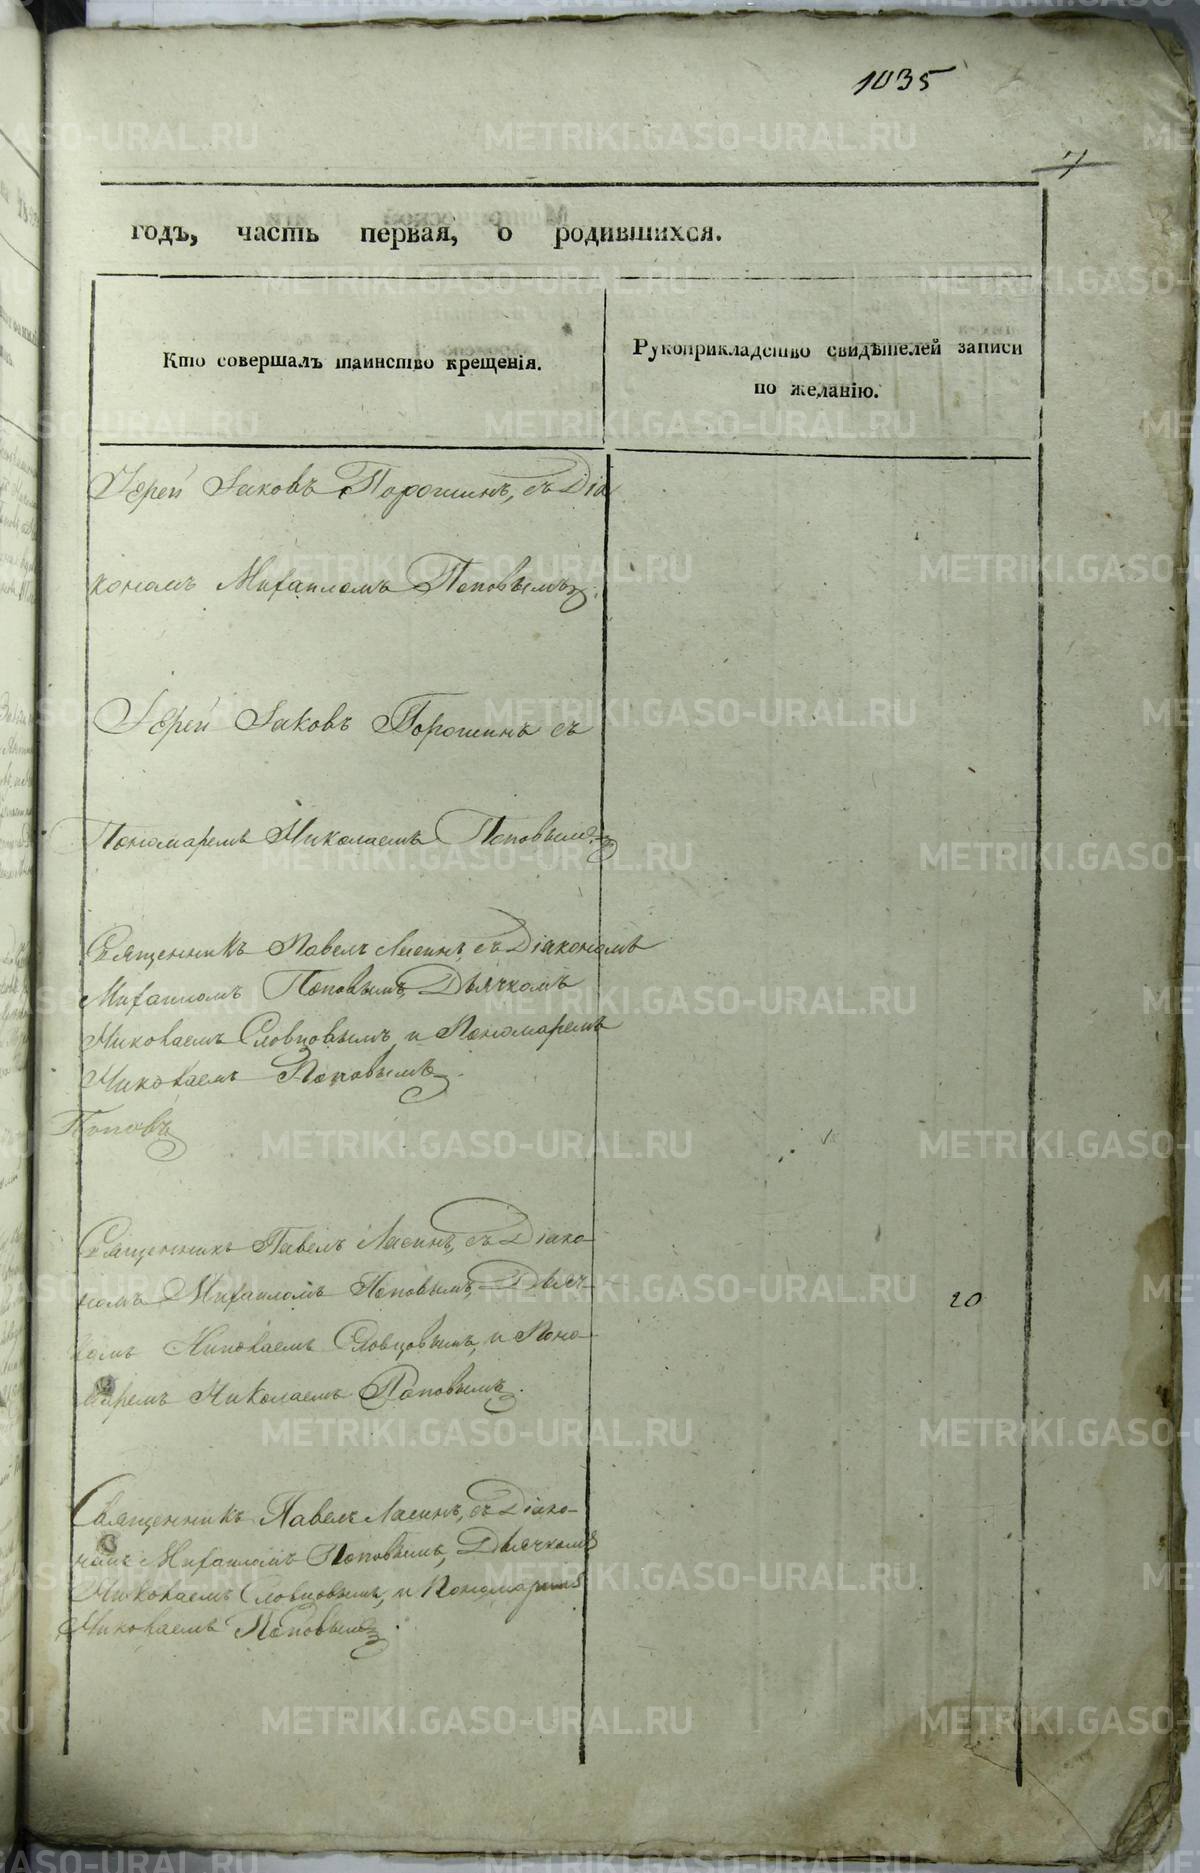 1035
7
годъ, часть первая, о родившихся.
Кто совершалъ таинство крещенія.
Рукоприкладство свидѣтелей записи
по желанію.
Іерей Іаковъ Порошинъ, съ Діа
кономъ Михаиломъ Поповымъ.
Іерей Іаковъ Порошинъ съ
Пономаремъ Николаемъ Поповымъ
Священникъ Павелъ Ласинъ, съ Діакономъ
Михаиломъ Поповымъ, Дьячкомъ
Николаемъ Словцовымъ, и Пономаремъ
Николаемъ Поповымъ.
Поповъ
Священникъ Павелъ Ласинъ, съ Діако-
номъ Михаиломъ Поповымъ, Дьяч-
комъ Николаемъ Словцовымъ, и Поно-
маремъ Николаемъ Поповымъ.
20
Священникъ Павелъ Ласинъ, съ Діако-
номъ Михаиломъ Поповымъ, Дьячкомъ
Николаемъ Словцовымъ, и Пономаремъ
Николаемъ Поповымъ.
METRIKI.GASO-URAL.RU